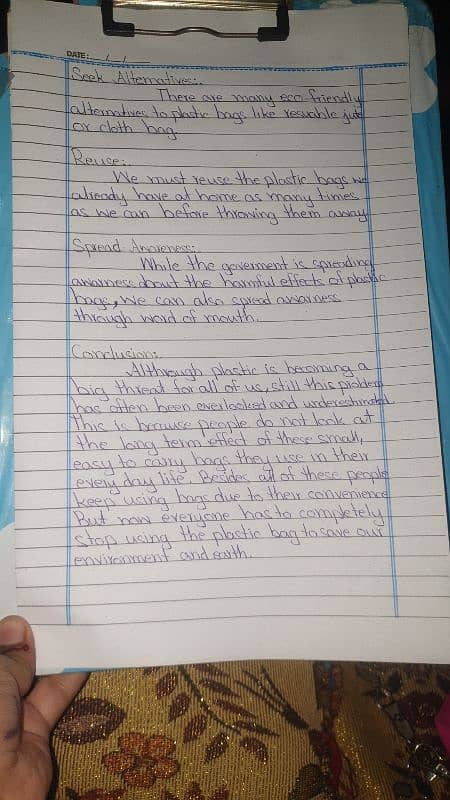 DATE: __/__/__
Seek Alternatives:.
There are many eco-friendly
alternatives to plastic bags like resuable jute
or cloth bag.
Reuse:.
We must reuse the plastic bags we
already have at home as many times
as we can before throwing them away
Spread Awareness:.
While the goverment is spreading
awarness about the harmful effects of plastic
bags, we can also spread awarness
through word of mouth.
Conclusion:.
Althrough plastic is becoming a
big threat for all of us, still this problem
has often been overlooked and underestimated
This is because people do not look at
the long term effect of these small,
easy to carry bags they use in their
every day life. Besides all of these people
keep using bags due to their convenience
But now everyone has to completely
stop using the plastic bag to save our
environment and earth.